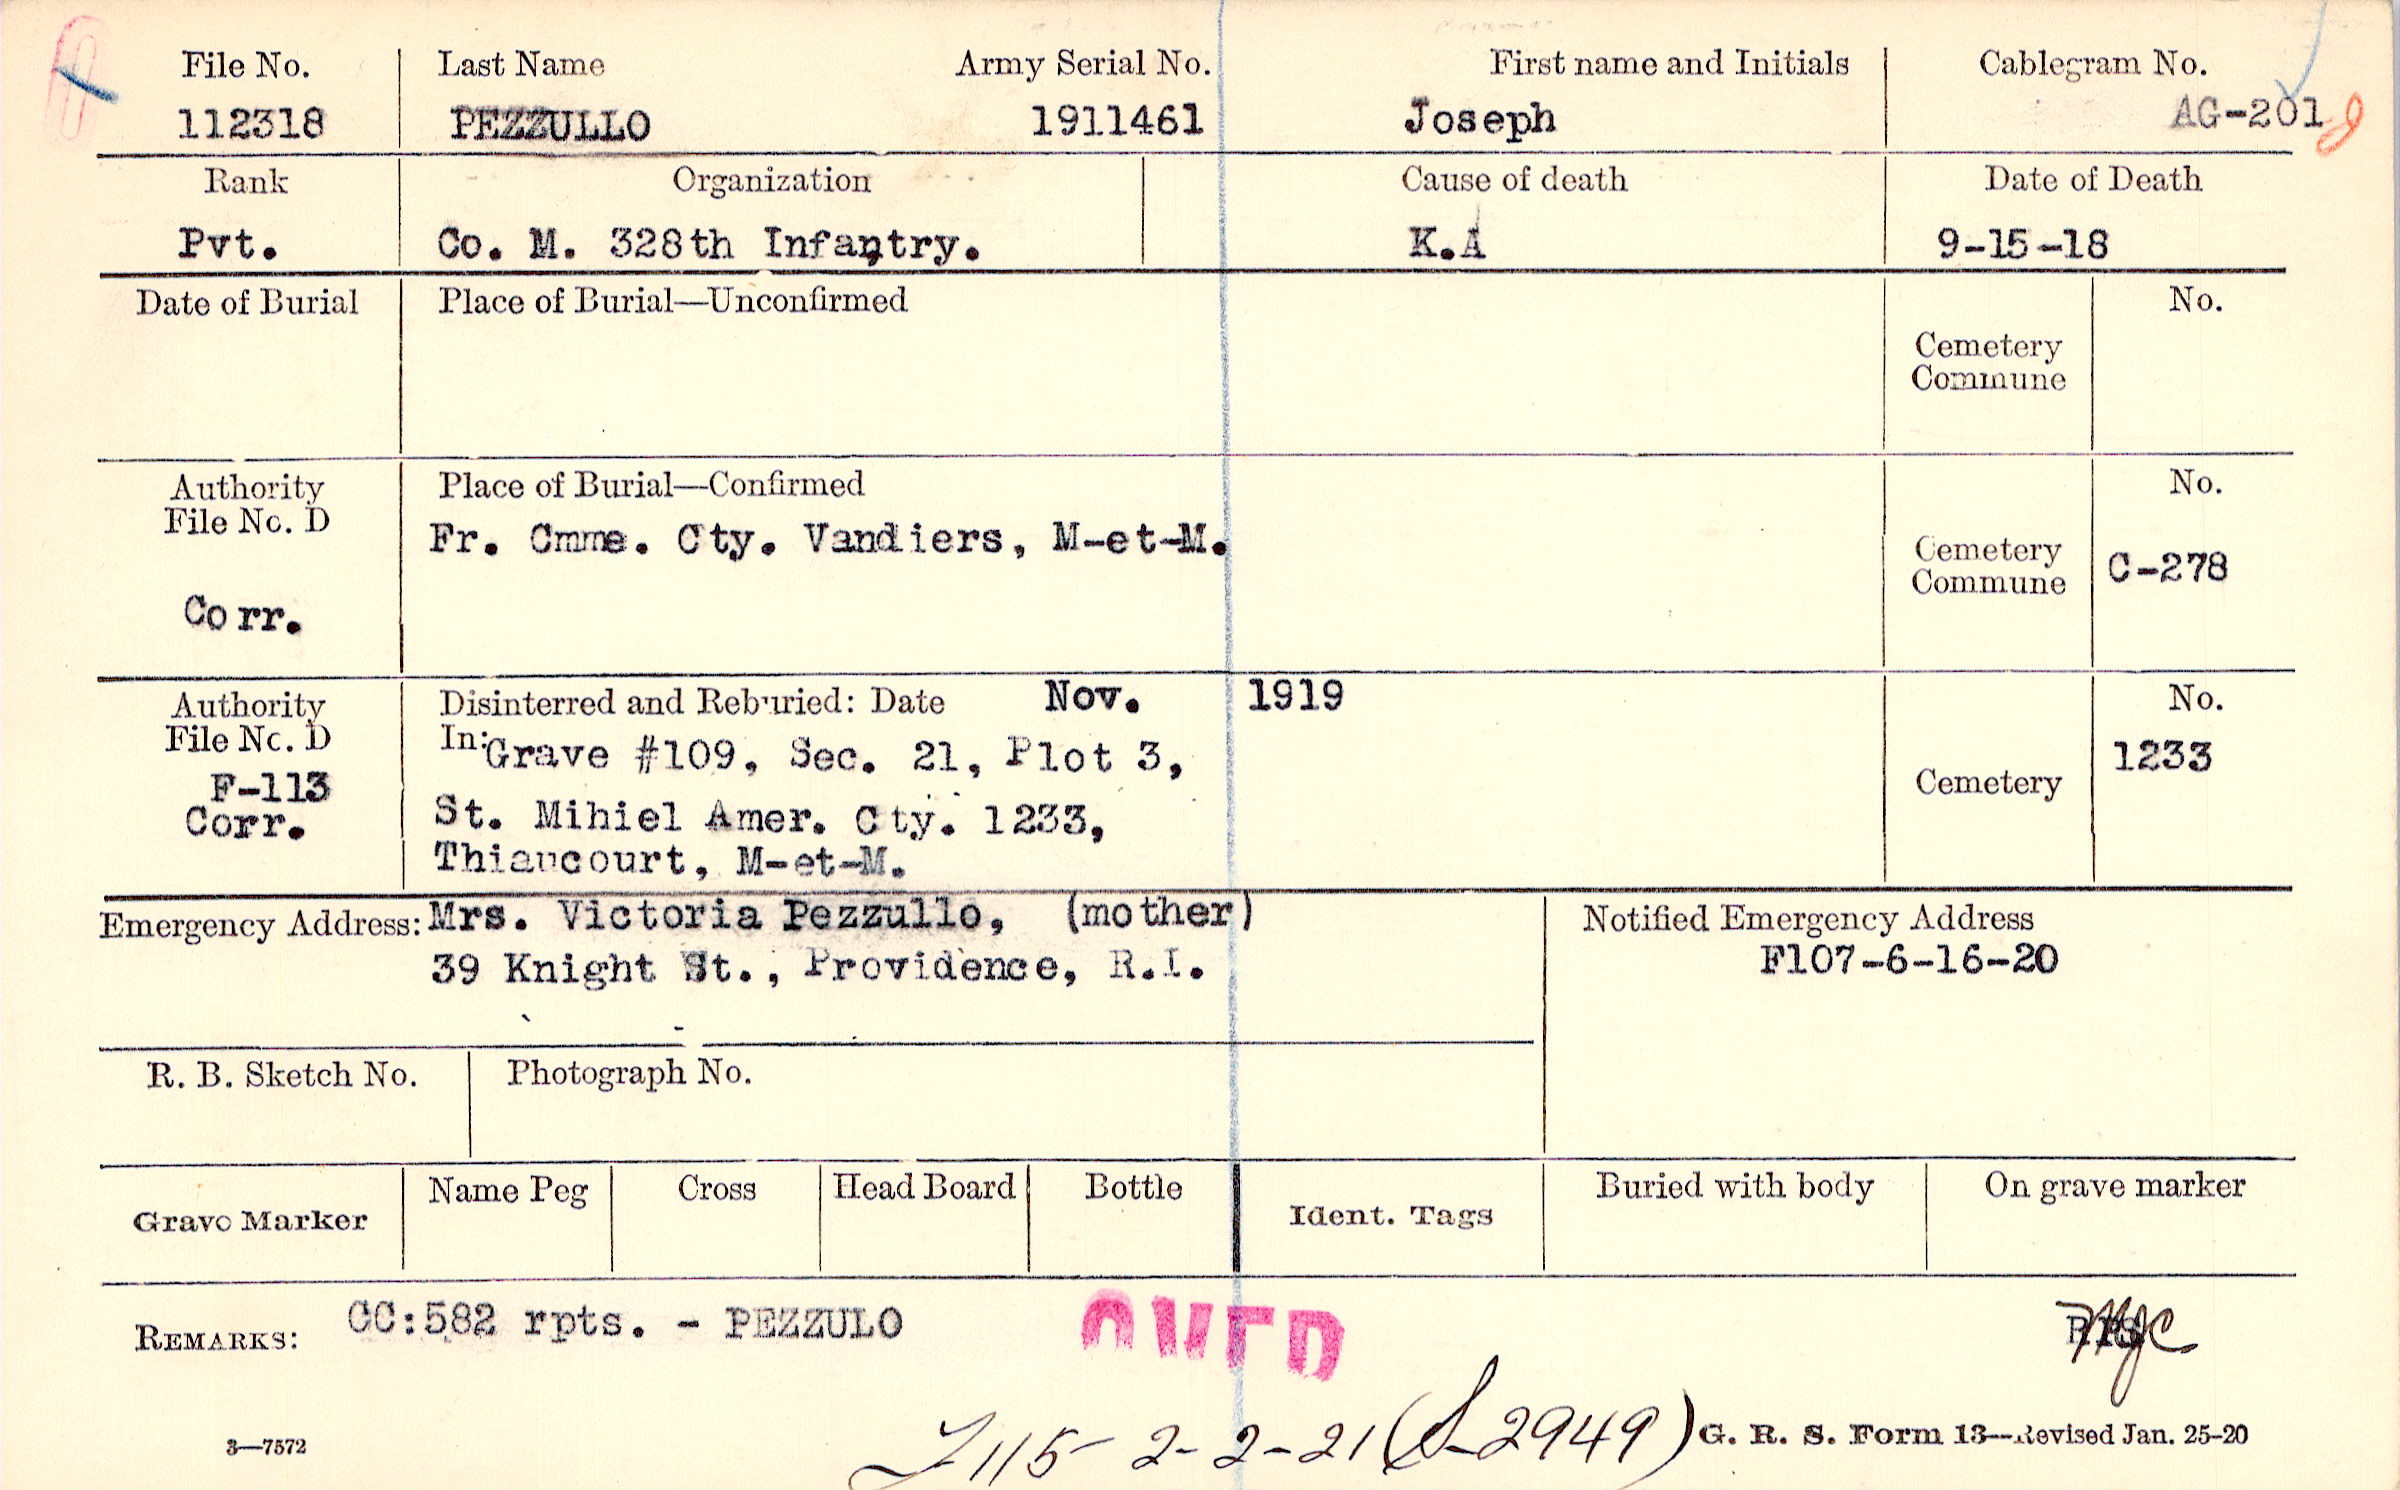 File No. Last Name Army Serial No. First name and Initials Cablegram No.
112318 PEZZULLO 1911461 Joseph AG-201
Rank Organization Cause of death Date of Death
Pvt. Co. M. 328th Infantry. K.A 9-15-18
Date of Burial Place of Burial—Unconfirmed No.
Cemetery
Commune
Authority Place of Burial—Confirmed No.
File No. D Fr. Cmme. Cty. Vandiers, M-et-M.
Cemetery
Commune C-278
Corr.
Authority Disinterred and Reburied: Date Nov. 1919 No.
File No. D In: Grave #109, Sec. 21, Plot 3, 1233
F-113 Cemetery
Corr. St. Mihiel Amer. Cty. 1233,
Thiaucourt, M-et-M.
Emergency Address: Mrs. Victoria Pezzullo, (mother) Notified Emergency Address
39 Knight St., Providence, R.I. F107-6-16-20
R. B. Sketch No. Photograph No.
Name Peg Cross Head Board Bottle Buried with body On grave marker
Grave Marker Ident. Tags
REMARKS: CC:582 rpts. - PEZZULO
115- 2-2-21 (S-2949)
3—7572 G. R. S. Form 13—Revised Jan. 25-20